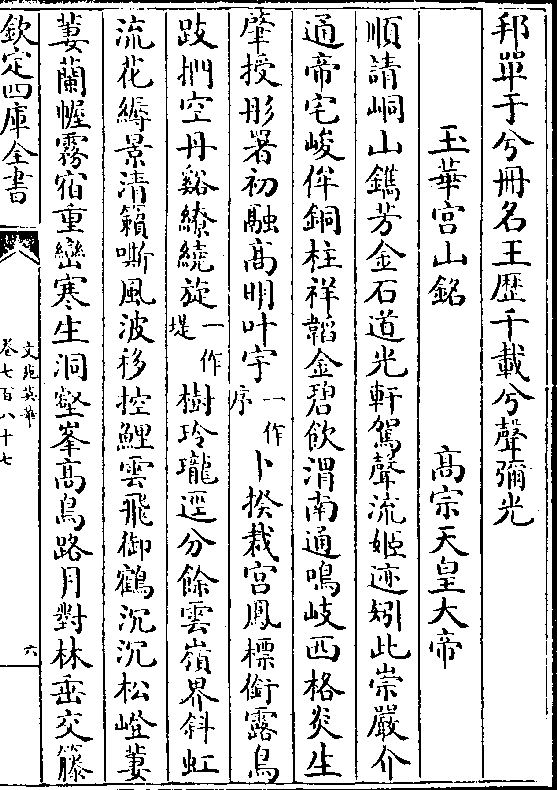 邦單于兮冊名王歷千載兮聲彌光
玉華宮山銘 高宗天皇大帝
順請峒山鐫芳金石道光軒駕聲流姬迹矧此崇嚴介
通帝宅峻侔銅柱祥韜金碧飲渭南通鳴岐西格炎生
肇授彤署初融髙明叶宇一作序卜揆裁宮鳳標銜露鳥
跂捫空丹谿繚繞旋一作堤樹玲瓏逕分餘雲嶺界斜虹
流花縟景清籟嘶風波移控鯉雲飛御鶴沉沉松嶝萋
萋蘭幄霧宿重巒寒生洞壑峯髙鳥路月對林垂交籐
欽定四庫全書
文苑英華
卷七百八十七
六